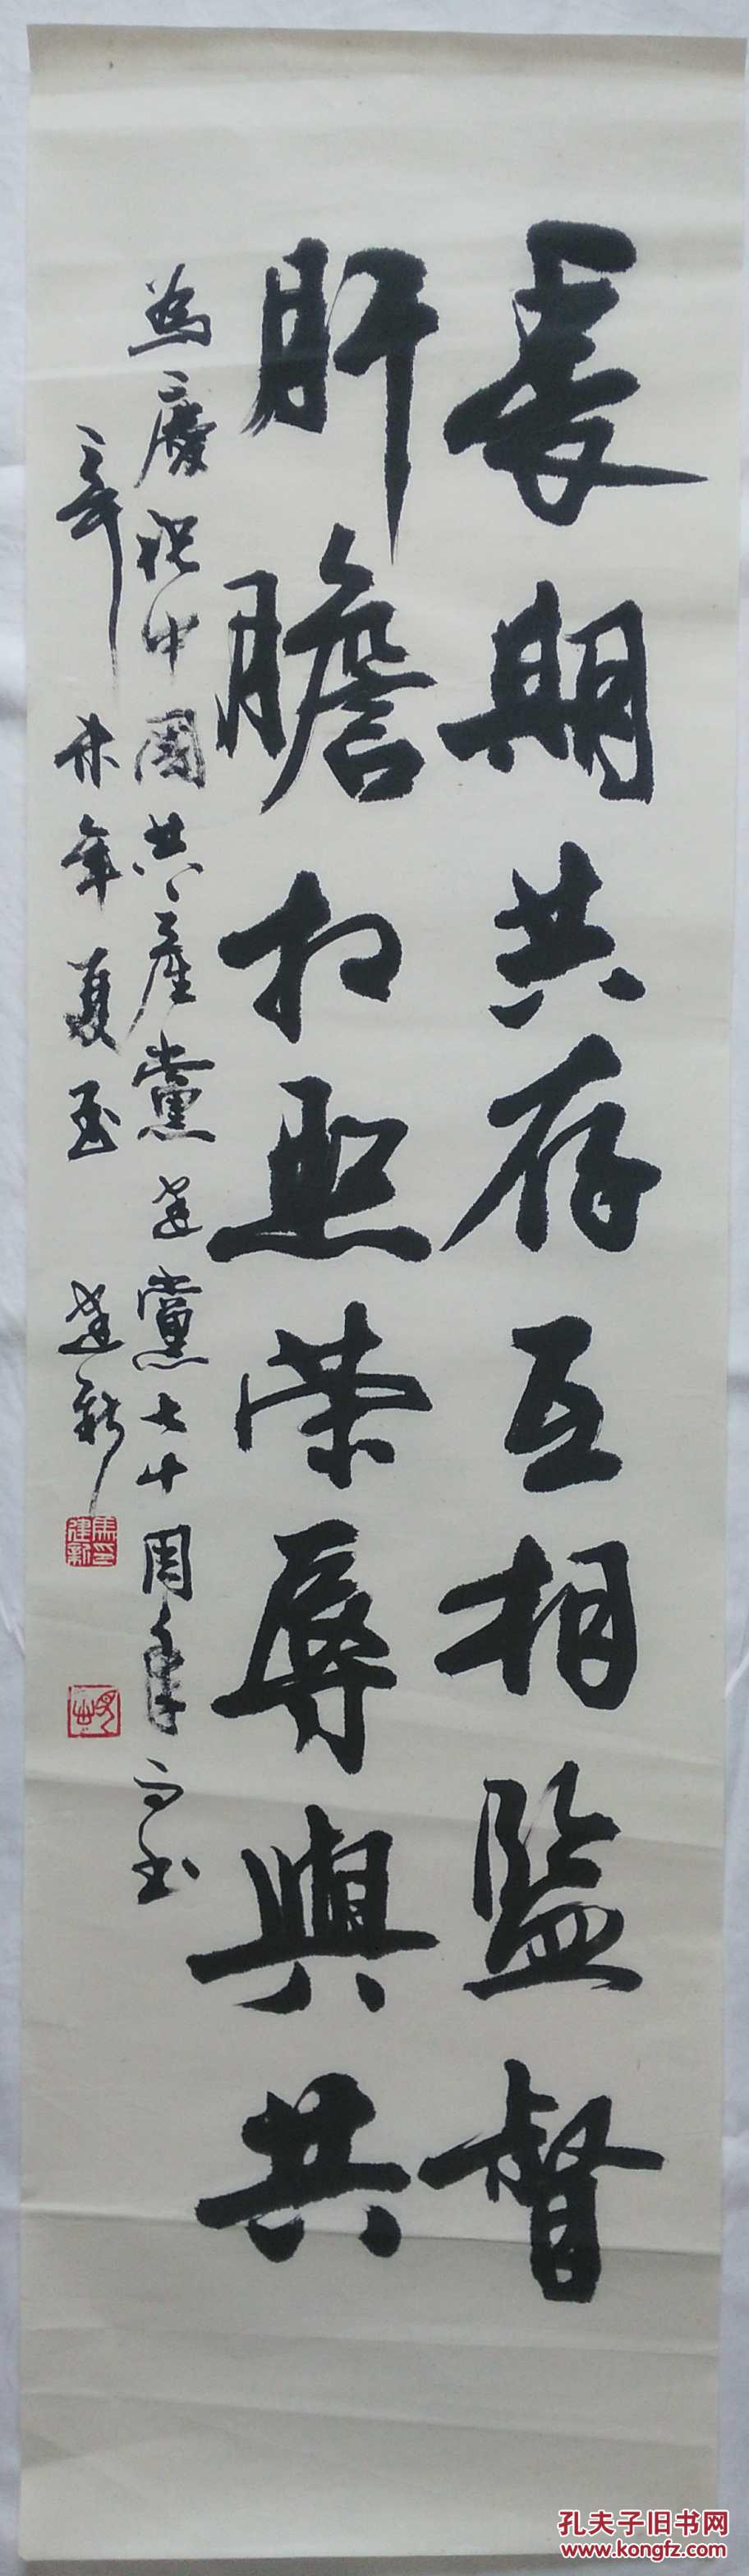 長期共存互相監督
肝膽相照荣辱與共
為慶祝中國共産黨建黨七十周年而书
辛未年夏玉 建新
馬建新印
孔夫子旧书网
www.kongfz.com